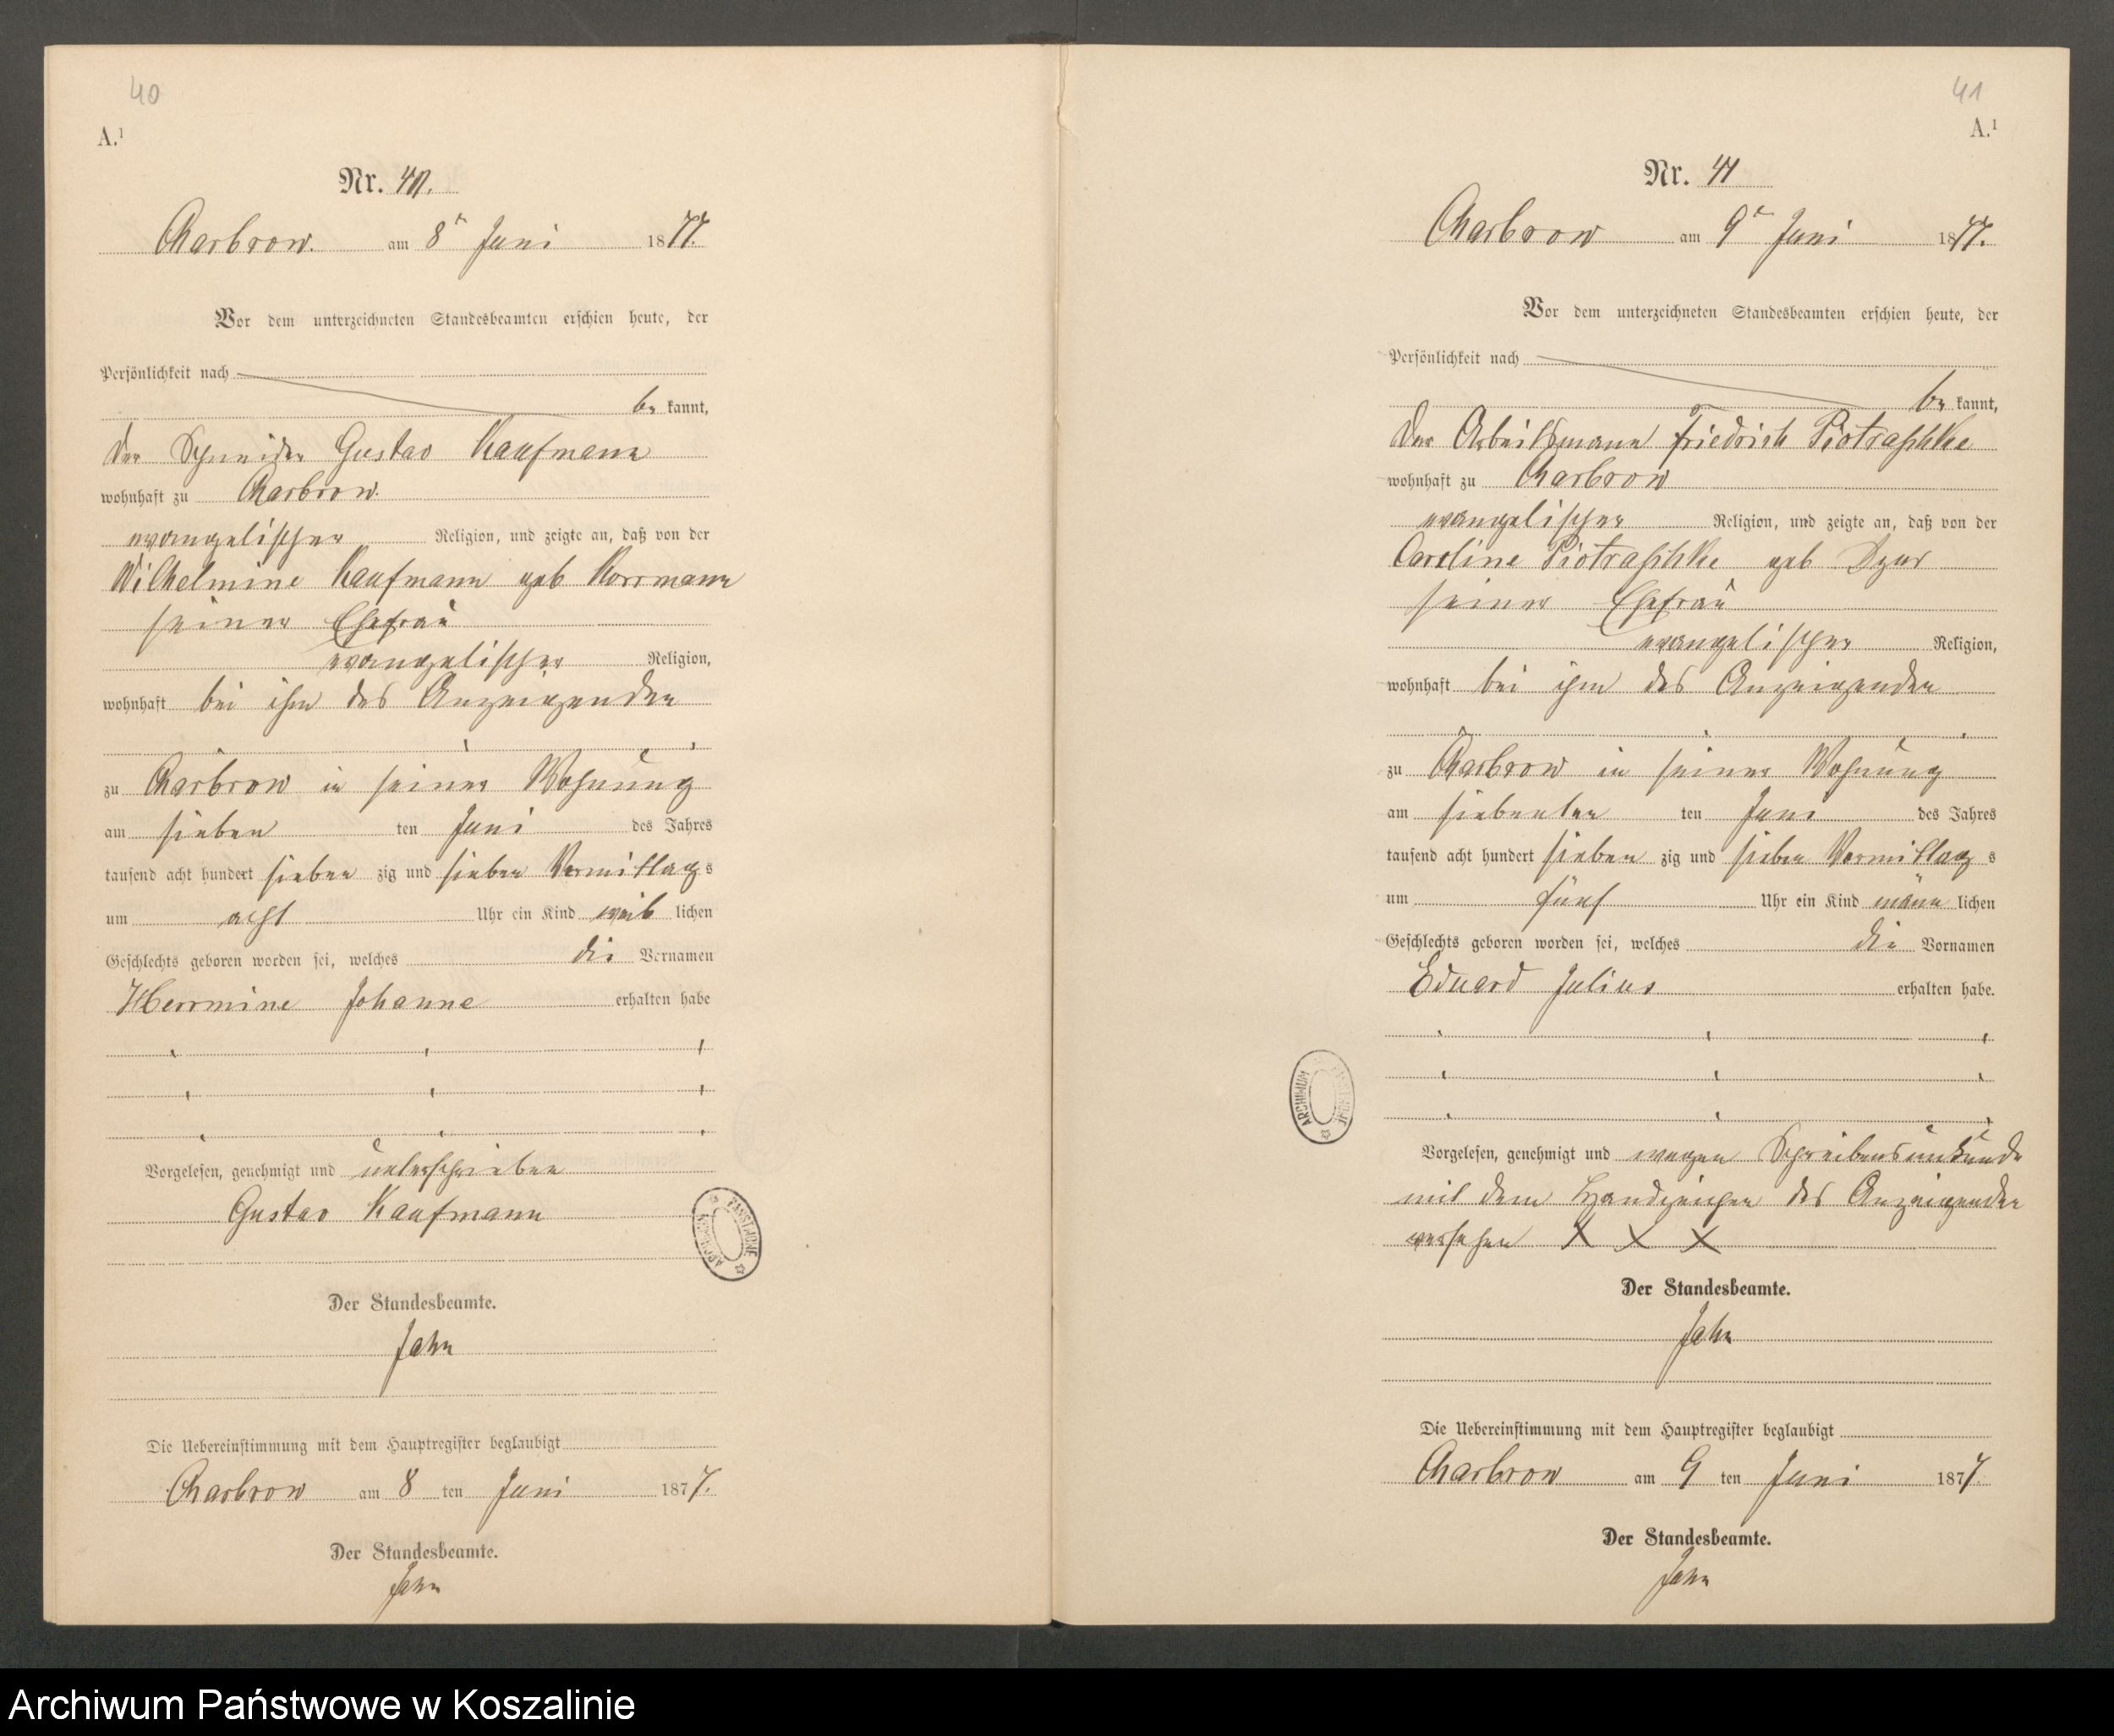 40
A.¹
Nr. 40.
Charbrow. am 8ᵗ Juni 1877.
Vor dem unterzeichneten Standesbeamten erschien heute, der
Persönlichkeit nach
be kannt,
der Schneider Gustav Kaufmann
wohnhaft zu Charbrow.
evangelischer Religion, und zeigte an, daß von der
Wilhelmine Kaufmann geb Korrmann
seiner Ehefrau
evangelischer Religion,
wohnhaft bei ihm des Anzeigenden
zu Charbrow in seiner Wohnung
am sieben ten Juni des Jahres
tausend acht hundert sieben zig und sieben Vormittag s
um acht Uhr ein Kind weib lichen
Geschlechts geboren worden sei, welches die Vornamen
Hermine Johanne erhalten habe
Vorgelesen, genehmigt und unterschrieben
Gustav Kaufmann
ARCHIWUM PAŃSTWOWE
Der Standesbeamte.
Jahn
Die Uebereinstimmung mit dem Hauptregister beglaubigt
Charbrow am 8 ten Juni 1877.
Der Standesbeamte.
Jahn
41
A.¹
Nr. 41
Charbrow am 9ᵗ Juni 1877.
Vor dem unterzeichneten Standesbeamten erschien heute, der
Persönlichkeit nach
be kannt,
der Arbeitsmann Friedrich Piotraschke
wohnhaft zu Charbrow
evangelischer Religion, und zeigte an, daß von der
Caroline Piotraschke geb
seiner Ehefrau
evangelischer Religion,
wohnhaft bei ihm des Anzeigenden
zu Charbrow in seiner Wohnung
am siebenten ten Juni des Jahres
tausend acht hundert sieben zig und sieben Vormittag s
um fünf Uhr ein Kind männ lichen
Geschlechts geboren worden sei, welches die Vornamen
Eduard Julius erhalten habe.
ARCHIWUM PAŃSTWOWE
Vorgelesen, genehmigt und wegen Schreibensunkunde
mit dem Handzeichen des Anzeigenden
versehen X X X
Der Standesbeamte.
Jahn
Die Uebereinstimmung mit dem Hauptregister beglaubigt
Charbrow am 9 ten Juni 1877.
Der Standesbeamte.
Jahn
Archiwum Państwowe w Koszalinie